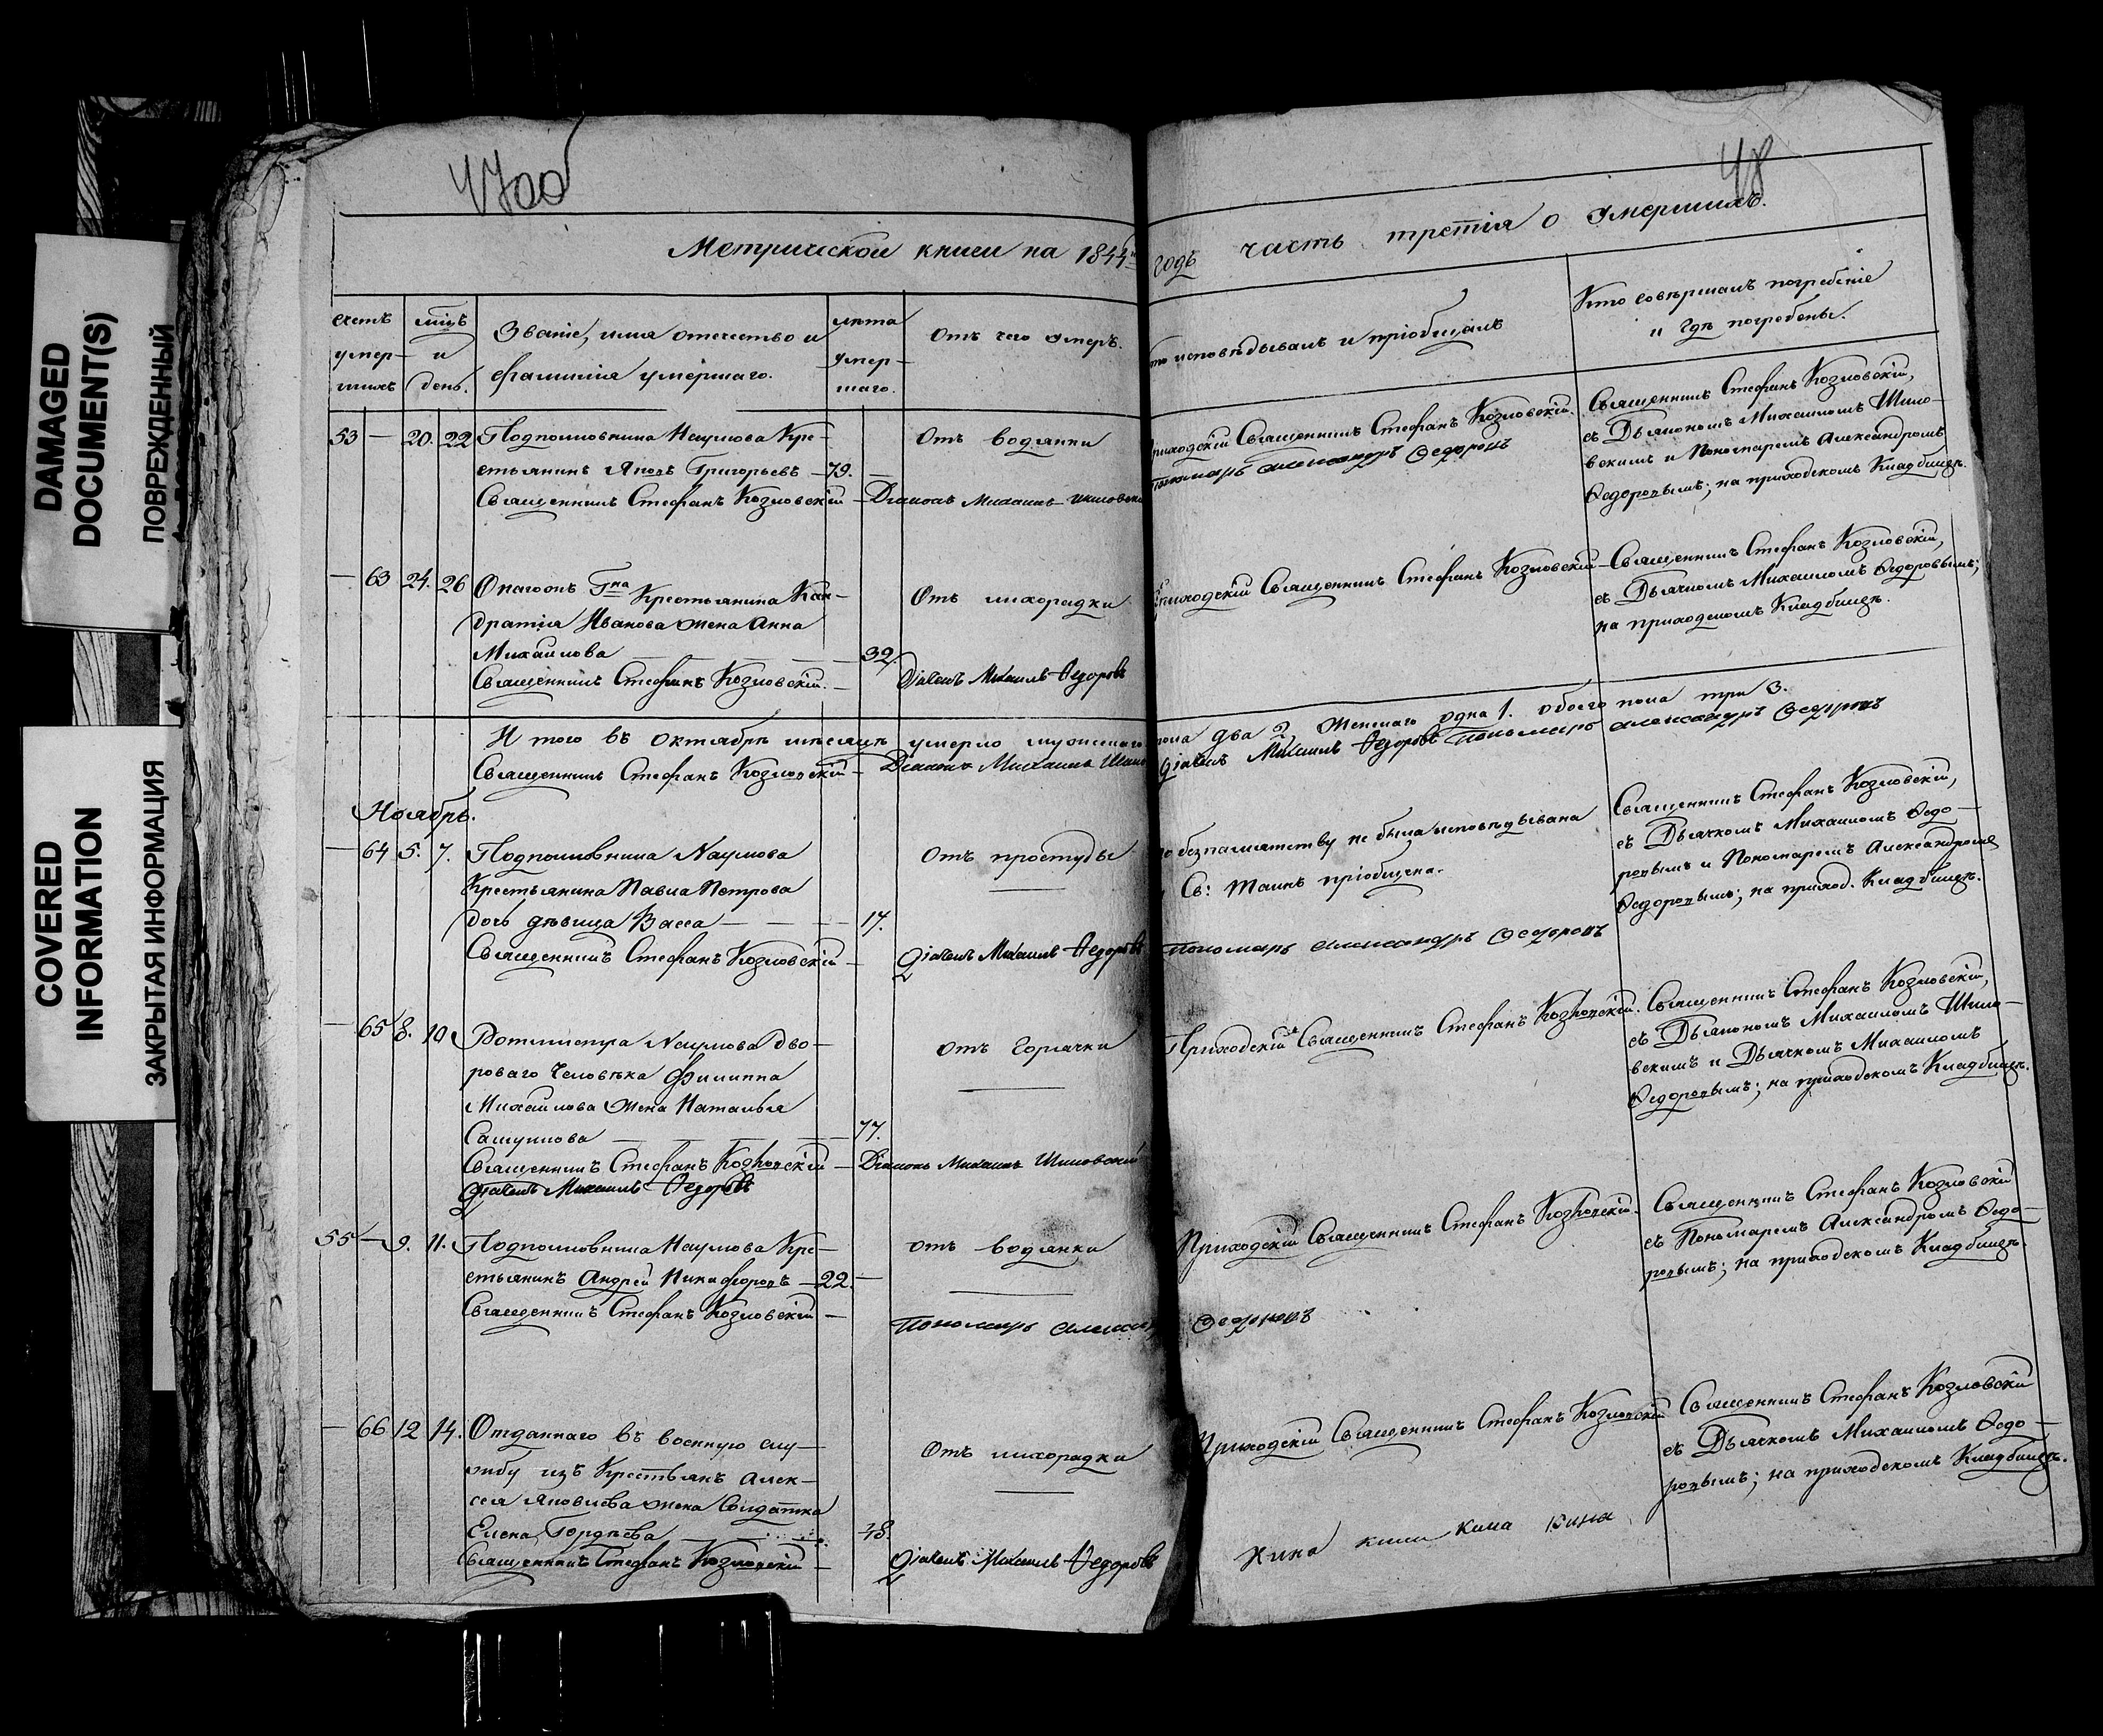 DAMAGED
DOCUMENT(S)
ПОВРЕЖДЕННЫЙ
COVERED
INFORMATION
ЗАКРЫТАЯ ИНФОРМАЦИЯ
47об
48
Метрической книги на 1844й годъ часть третія о умершихъ.
счетъ умер-шихъ
мѣцъ и день.
Званіе, имя отечество и
фамилія умершаго.
лѣта умер-шаго.
Отъ чего умеръ.
исповѣдывалъ и пріобщалъ
Кто совершалъ погребеніе
и гдѣ погребены.
53 — 20. 22 Подполковника Наумова Кре-
стьянинъ Яковъ Григорьевъ — 79. —
Отъ водянки
Приходскій Священникъ Стефанъ Козловскій.
Пономарь Александръ Федоровъ
Священникъ Стефанъ Козловскій,
съ Дьякономъ Михаиломъ Шило-
вскимъ и Пономаремъ Александромъ
Ѳедоровымъ; на приходскомъ Кладбищѣ.
Священникъ Стефанъ Козловскій — Діаконъ Михаилъ Шиловскі
— 63 24. 26 Гна Крестьянина Кон-
дратія Иванова жена Анна
Михайлова — 32.
Отъ лихорадки
Приходскій Священникъ Стефанъ Козловскій —
Священникъ Стефанъ Козловскій,
съ Дьячкомъ Михаиломъ Ѳедоровымъ;
на приходскомъ Кладбищѣ.
Священникъ Стефанъ Козловскій. — Дьячекъ Михаилъ Ѳедоровъ
И того въ Октябрѣ мѣсяцѣ умерло мужескаго пола два 2, женскаго одна 1. обоего пола три 3.
Священникъ Стефанъ Козловскій — Діаконъ Михаилъ Шило Дьячекъ Михаилъ Ѳедоровъ Пономарь Александръ Федоровъ
Ноябрь.
— 64 5. 7. Подполковника Наумова
Крестьянина Павла Петрова
дочь дѣвица Васса — 17.
Отъ простуды
по безпамятству не была исповѣдывана
Св: Таинъ пріобщена.
Священникъ Стефанъ Козловскій,
съ Дьячкомъ Михаиломъ Ѳедо-
ровымъ и Пономаремъ Александромъ
Ѳедоровымъ; на приход. Кладбищѣ.
Священникъ Стефанъ Козловскій — Дьячекъ Михаилъ Ѳедоровъ Пономарь Александръ Федоровъ
— 65 8. 10. Ротмистра Наумова дво-
роваго Человѣка Филиппа
Михайлова жена Наталья
— 77.
Отъ горячки
Приходскій Священникъ Стефанъ Козловскій.
Священникъ Стефанъ Козловскій,
съ Дьякономъ Михаиломъ Шило-
вскимъ и Дьячкомъ Михаиломъ
Ѳедоровымъ; на приходскомъ Кладбищѣ.
Священникъ Стефанъ Козловскій — Діаконъ Михаилъ Шиловскій
Дьячекъ Михаилъ Ѳедоровъ
55 — 9. 11. Подполковника Наумова Кре-
стьянинъ Андрей Никифоровъ — 22. —
Отъ водянки
Приходскій Священникъ Стефанъ Козловскій.
Священникъ Стефанъ Козловскій
съ Пономаремъ Александромъ Ѳедо-
ровымъ; на приходскомъ Кладбищѣ.
Священникъ Стефанъ Козловскій — Пономарь Алексан Федоровъ
— 66 12 14. Отданнаго въ военную слу-
жбу изъ Крестьянъ Алек-
сея Яковлева жена Солдатка
Елена Гордѣева — 48.
Отъ лихорадки
Приходскій Священникъ Стефанъ Козловскій
Священникъ Стефанъ Козловскій
съ Дьячкомъ Михаиломъ Ѳедо-
ровымъ; на приходскомъ Кладбищѣ.
Священникъ Стефанъ Козловскій — Дьячекъ Михаилъ Ѳедоровъ